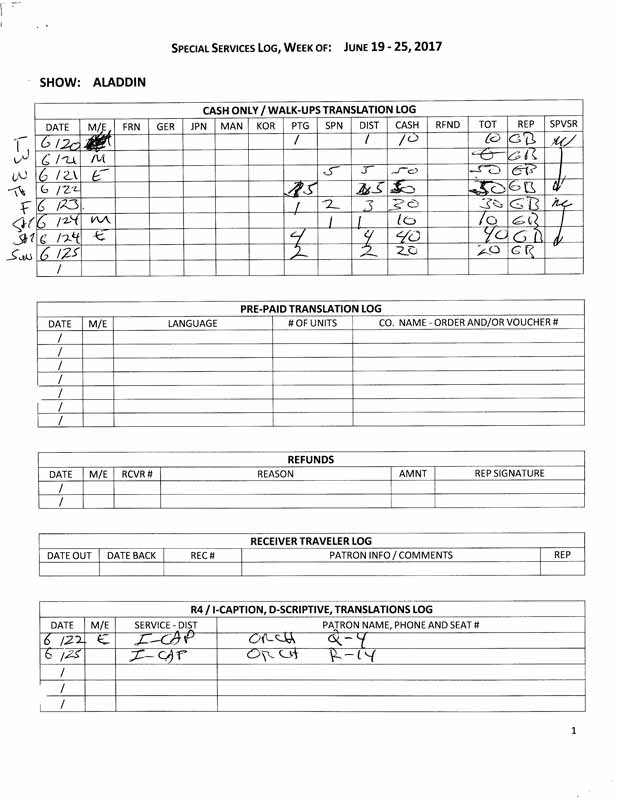 SPECIAL SERVICES LOG, WEEK OF: JUNE 19 - 25, 2017
SHOW: ALADDIN
CASH ONLY / WALK-UPS TRANSLATION LOG
DATE M/E FRN GER JPN MAN KOR PTG SPN DIST CASH RFND TOT REP SPVSR
T 6 / 20 1 1 10 10 GB
W 6 / 21 M GB
W 6 / 21 E 5 5 50 50 GB
TH 6 / 22 5 5 50 50 GB
F 6 / 23 1 2 3 30 30 GB
SAT 6 / 24 M 1 1 10 10 GB
SAT 6 / 24 E 4 4 40 40 GB
SUN 6 / 25 2 2 20 20 GB
/
PRE-PAID TRANSLATION LOG
DATE M/E LANGUAGE # OF UNITS CO. NAME - ORDER AND/OR VOUCHER #
/
/
/
/
/
/
/
REFUNDS
DATE M/E RCVR # REASON AMNT REP SIGNATURE
/
/
RECEIVER TRAVELER LOG
DATE OUT DATE BACK REC # PATRON INFO / COMMENTS REP
R4 / I-CAPTION, D-SCRIPTIVE, TRANSLATIONS LOG
DATE M/E SERVICE - DIST PATRON NAME, PHONE AND SEAT #
6 / 22 E I-CAP ORCH Q-4
6 / 25 I-CAP ORCH R-14
/
/
/
1